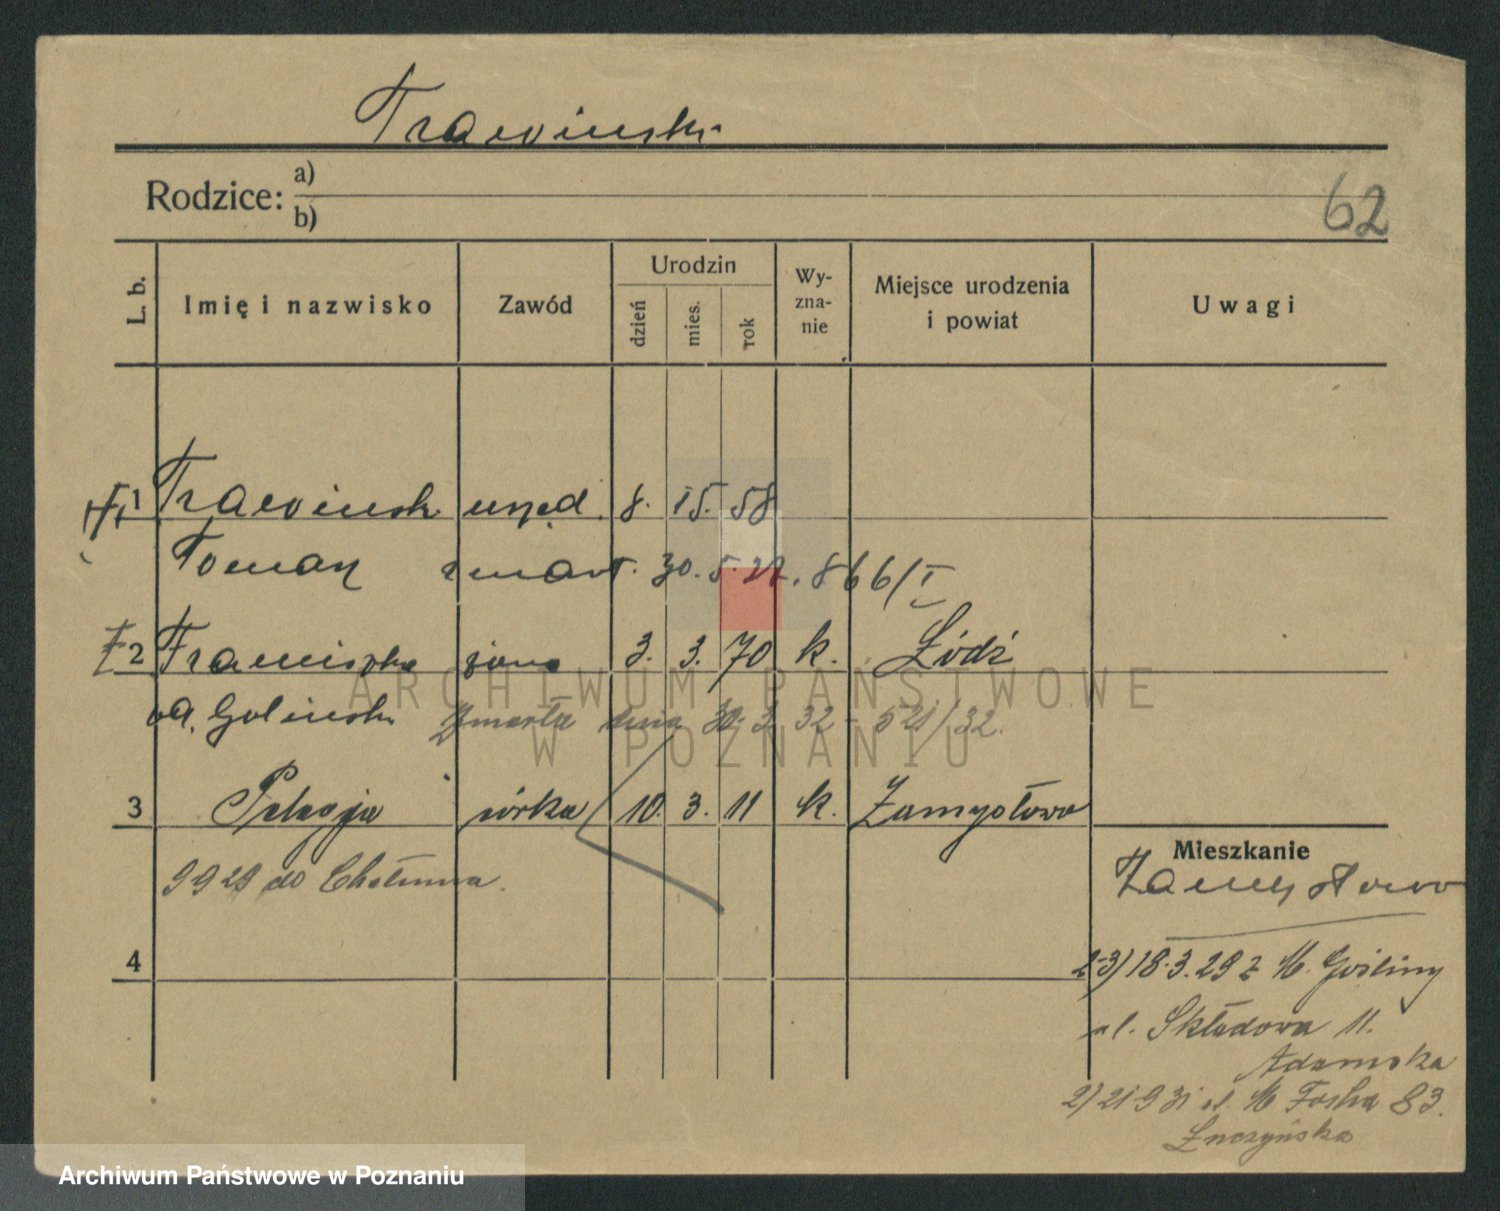 Trawinski
Rodzice: a)
b)
62
L. b. Imię i nazwisko Zawód Urodzin dzień mies. rok Wy-zna-nie Miejsce urodzenia i powiat Uwagi
1 Trawinsk urzęd. 8. 58
Roman zmarł. 30. 5. 27. 866/I
2 Franciszka żona 3. 3. 70 k. Łódź
od. Golinski Zmarła dnia 30. 3 32 - 521/32.
3 Pelagja córka 10. 3. 11 k. Zamysłowo
9 9 29 do Chełmna.
4
Mieszkanie
Zamysłowo
2-3) 18.3.29 z M. Gośliny
ul. Składowa 11.
Adamska
2) 21 9 31 ul. M Focha 83.
Łuczyńska
ARCHIWUM PAŃSTWOWE
W POZNANIU
Archiwum Państwowe w Poznaniu